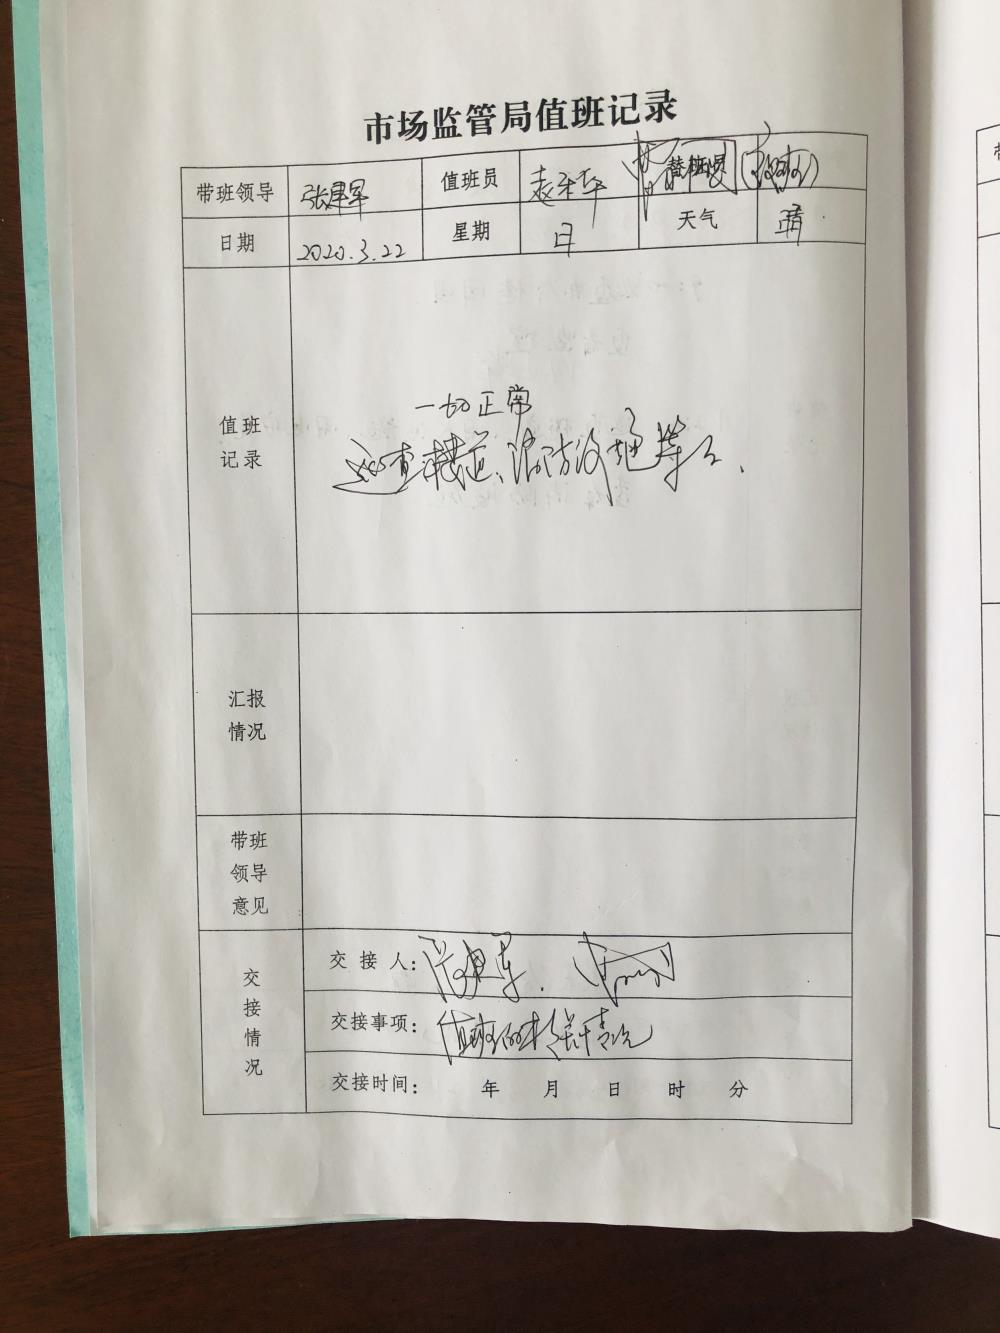 市场监管局值班记录
带班领导 张建军 值班员 替班员
日期 2020.3.22 星期 日 天气 晴
值班记录
一切正常
巡查楼道、消防设施等
汇报情况
带班领导意见
交接情况
交接人:
交接事项: 值班的相关情况
交接时间: 年 月 日 时 分